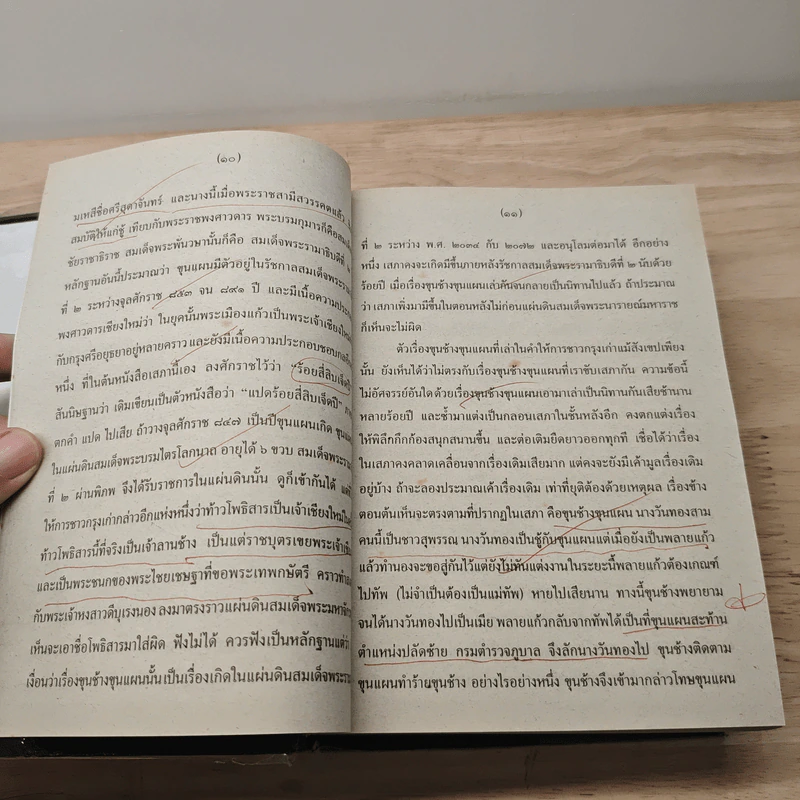 (๑๐)
มเหสีชื่อศรีสุดาจันทร์ และนางนี้เมื่อพระราชสามีสวรรคตแล้ว
สมบัติให้แก่ชู้ เทียบกับพระราชพงศาวดาร พระบรมกุมารก็คือสมเด็จ
ชัยราชาธิราช สมเด็จพระพันวษานั้นก็คือ สมเด็จพระรามาธิบดีที่
หลักฐานอันนี้ประมาณว่า ขุนแผนมีตัวอยู่ในรัชกาลสมเด็จพระราม
ที่ ๒ ระหว่างจุลศักราช ๘๕๓ จน ๘๙๑ ปี และมีเนื้อความประกอบ
พงศาวดารเชียงใหม่ว่า ในยุคนั้นพระเมืองแก้วเป็นพระเจ้าเชียงใหม่
กับกรุงศรีอยุธยาอยู่หลายคราว และยังมีเนื้อความประกอบชอบกล
หนึ่ง ที่ในต้นหนังสือเสภานี้เอง ลงศักราชไว้ว่า “ร้อยสี่สิบเจ็ดปี”
สันนิษฐานว่า เดิมเขียนเป็นตัวหนังสือว่า “แปดร้อยสี่สิบเจ็ดปี”
ตกคำ แปด ไปเสีย ถ้าวางจุลศักราช ๘๔๗ เป็นปีขุนแผนเกิด
ในแผ่นดินสมเด็จพระบรมไตรโลกนาถ อายุได้ ๖ ขวบ สมเด็จพระราม
ที่ ๒ ผ่านพิภพ จึงได้รับราชการในแผ่นดินนั้น ดูก็เข้ากันได้
ให้การชาวกรุงเก่ากล่าวอีกแห่งหนึ่งว่าท้าวโพธิสารเป็นเจ้าเชียงใหม่
ท้าวโพธิสารนี้ที่จริงเป็นเจ้าลานช้าง เป็นแต่ราชบุตรเขยพระเจ้า
และเป็นพระชนกของพระไชยเชษฐาที่ขอพระเทพกษัตรี คราวทำ
กับพระเจ้าหงสาวดีบุเรงนอง ลงมาตรงราวแผ่นดินสมเด็จพระมหาจักร
เห็นจะเอาชื่อโพธิสารมาใส่ผิด ฟังไม่ได้ ควรฟังเป็นหลักฐานแต่ว่า
เงื่อนว่าเรื่องขุนช้างขุนแผนนั้นเป็นเรื่องเกิดในแผ่นดินสมเด็จพระราม
(๑๑)
ที่ ๒ ระหว่าง พ.ศ. ๒๐๓๔ กับ ๒๐๗๒ และอนุโลมต่อมาได้ อีกอย่าง
หนึ่ง เสภาคงจะเกิดมีขึ้นภายหลังรัชกาลสมเด็จพระรามาธิบดีที่ ๒ นับด้วย
ร้อยปี เมื่อเรื่องขุนช้างขุนแผนเล่ากันจนกลายเป็นนิทานไปแล้ว ถ้าประมาณ
ว่า เสภาเพิ่งมามีขึ้นในตอนหลังไม่ก่อนแผ่นดินสมเด็จพระนารายณ์มหาราช
ก็เห็นจะไม่ผิด
ตัวเรื่องขุนช้างขุนแผนที่เล่าในคำให้การชาวกรุงเก่าแม้สังเขปเพียง
นั้น ยังเห็นได้ว่าไม่ตรงกับเรื่องขุนช้างขุนแผนที่เราขับเสภากัน ความข้อนี้
ไม่อัศจรรย์อันใดด้วยเรื่องขุนช้างขุนแผนเอามาเล่าเป็นนิทานกันเสียช้านาน
หลายร้อยปี และซ้ำมาแต่งเป็นกลอนเสภาในชั้นหลังอีก คงตกแต่งเรื่อง
ให้พิลึกกึกก้องสนุกสนานขึ้น และต่อเติมยืดยาวออกทุกที เชื่อได้ว่าเรื่อง
ในเสภาคงคลาดเคลื่อนจากเรื่องเดิมเสียมาก แต่คงจะยังมีเค้ามูลเรื่องเดิม
อยู่บ้าง ถ้าจะลองประมาณเค้าเรื่องเดิม เท่าที่ยุติต้องด้วยเหตุผล เรื่องช้าง
ตอนต้นเห็นจะตรงตามที่ปรากฏในเสภา คือขุนช้างขุนแผน นางวันทองสาม
คนนี้เป็นชาวสุพรรณ นางวันทองเป็นชู้กับขุนแผนแต่เมื่อยังเป็นพลายแก้ว
แล้วทำนองจะขอสู่กันไว้แต่ยังไม่ทันแต่งงานในระยะนี้พลายแก้วต้องเกณฑ์
ไปทัพ (ไม่จำเป็นต้องเป็นแม่ทัพ) หายไปเสียนาน ทางนี้ขุนช้างพยายาม
จนได้นางวันทองไปเป็นเมีย พลายแก้วกลับจากทัพได้เป็นที่ขุนแผนสะท้าน
ตำแหน่งปลัดซ้าย กรมตำรวจภูบาล จึงลักนางวันทองไป ขุนช้างติดตาม
ขุนแผนทำร้ายขุนช้าง อย่างไรอย่างหนึ่ง ขุนช้างจึงเข้ามากล่าวโทษขุนแผน